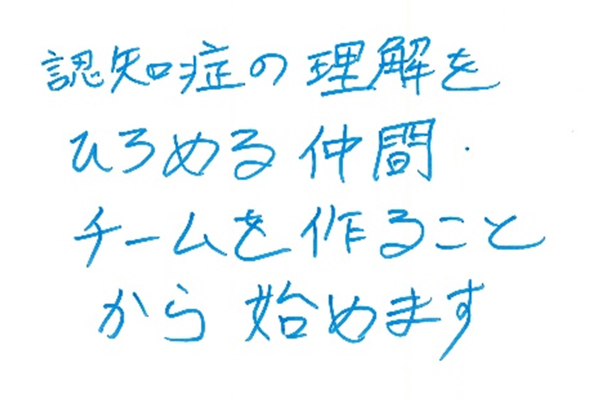 認知症の理解を
ひろめる仲間・
チームを作ること
から始めます